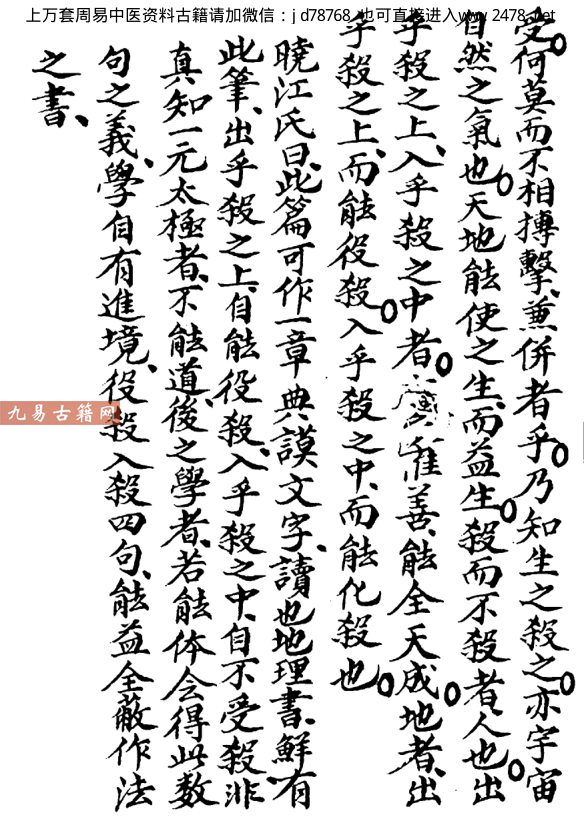 上万套周易中医资料古籍请加微信：j d78768 也可直接进入www 2478 .net
受何莫而不相搏擊、兼併者乎。乃知生之殺之。亦宇宙
自然之氣也。天地能使之生、而益生。殺而不殺者、人也。出
乎殺之上、入乎殺之中者。惟善、能全天成。地者、出
乎殺之上、而能役殺。入乎殺之中、而能化殺也。
曉江氏曰、此篇可作一章典謨文字、讀也地理書、鮮有
此筆、出乎殺之上、自能役殺、入乎殺之中、自不受殺、非
真知一元太極者、不能道、後之學者、若能体会得此数
句之義、學自有進境、役殺入殺四句、能益全蔽作法
之書、
九易古籍网